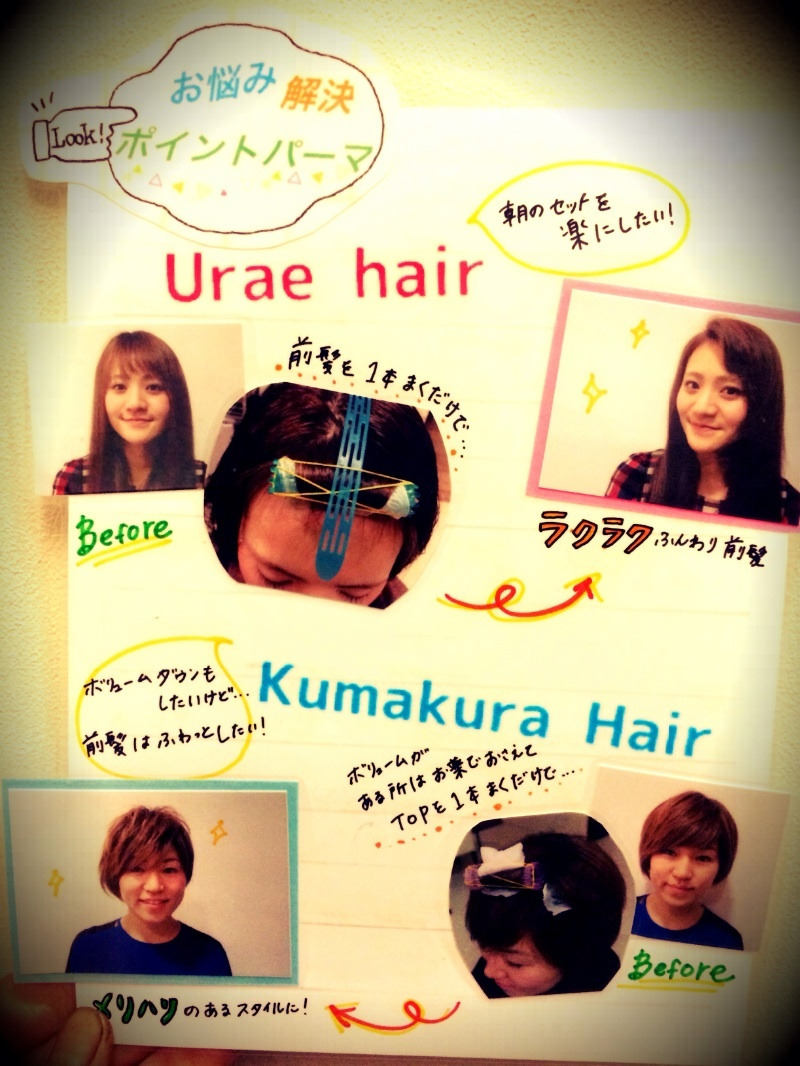 Look!
お悩み 解決
ポイントパーマ
朝のセットを
楽にしたい!
Urae hair
前髪を1本まくだけで…
Before
ラクラクふんわり前髪
ボリュームダウンも
したいけど…
前髪はふわっとしたい!
Kumakura Hair
ボリュームが
ある所はお薬でおさえて
TOPを1本まくだけで…
Before
メリハリのあるスタイルに!